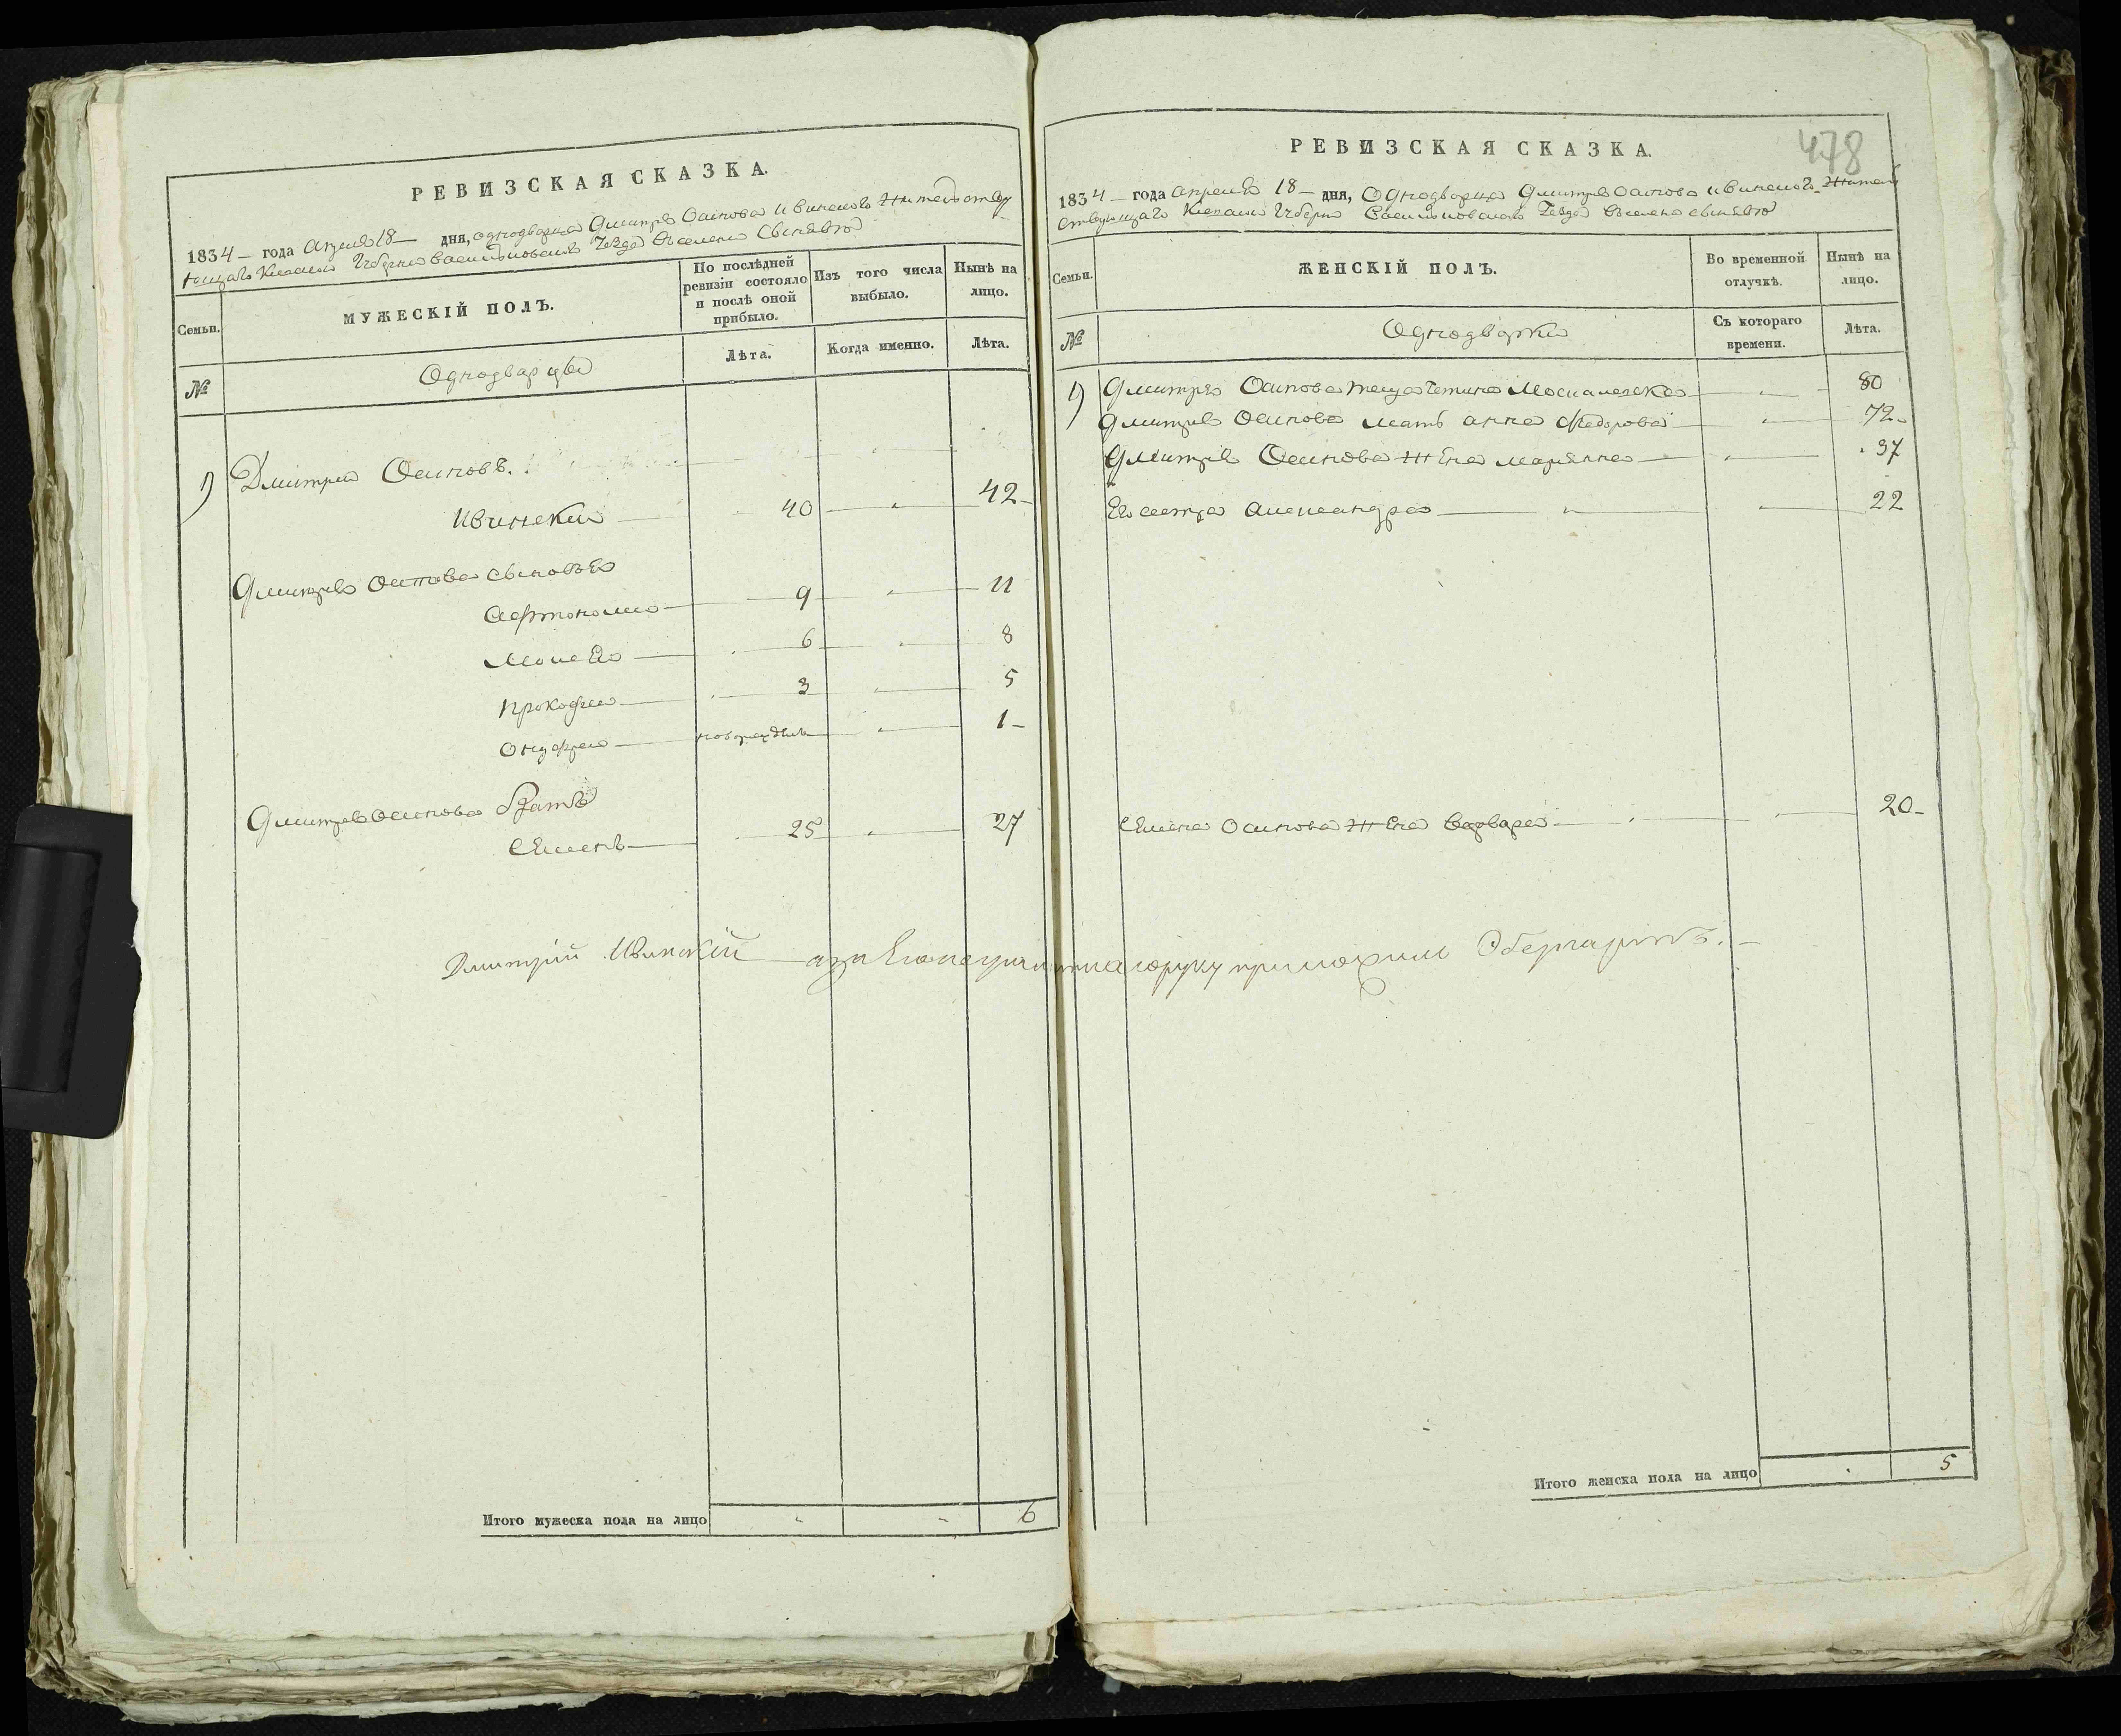 РЕВИЗСКАЯ СКАЗКА.
1834 — года Апреля 18 — дня, однодворца Дмитрія Осипова Ивинского жительству
ющаго Кіевской Губерніи Васильковскаго Уезда Въ селеніи
Семьи.
МУЖЕСКІЙ ПОЛЪ.
По послѣдней ревизіи состояло и послѣ оной прибыло.
Изъ того числа выбыло.
Нынѣ на лицо.
№
Однодворцы
Лѣта.
Когда именно.
Лѣта.
1) Дмитрій Осиповъ.
Ивинскій 40 42
Дмитрія Осипова сыновья
9 11
Моисей 6 8
Прокофій 3 5
Онуфрій новорожденъ 1
Дмитрія Осипова братъ
Семенъ 25 27
Дмитрій Ивинскій а за его неграмотнаго руку приложилъ
Итого мужеска пола на лицо 6
478
РЕВИЗСКАЯ СКАЗКА.
1834 — года апреля 18 — дня, Однодворца Дмитрія Осипова Ивинского Житель
ствующаго Кіевской Губерніи Васильковскаго Уезда Въ селеніи
Семьи.
ЖЕНСКІЙ ПОЛЪ.
Во временной отлучкѣ.
Нынѣ на лицо.
№
Однодворки
Съ котораго времени.
Лѣта.
1) Дмитрія Осипова теща 80
Дмитрія Осипова мать анна Федорова 72
Дмитрія Осипова жена марьянна 37
Его сестра Александра 22
Семена Осипова жена варвара 20
Итого женска пола на лицо 5